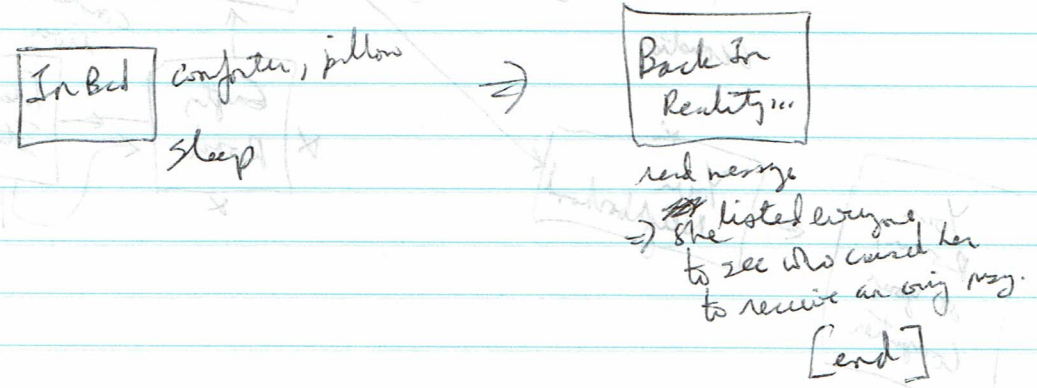 In Bed
comforter, pillow
sleep
⇒
Back In
Reality...
read message
⇒ she listed everyone
to see who caused her
to receive an msg.
[end]